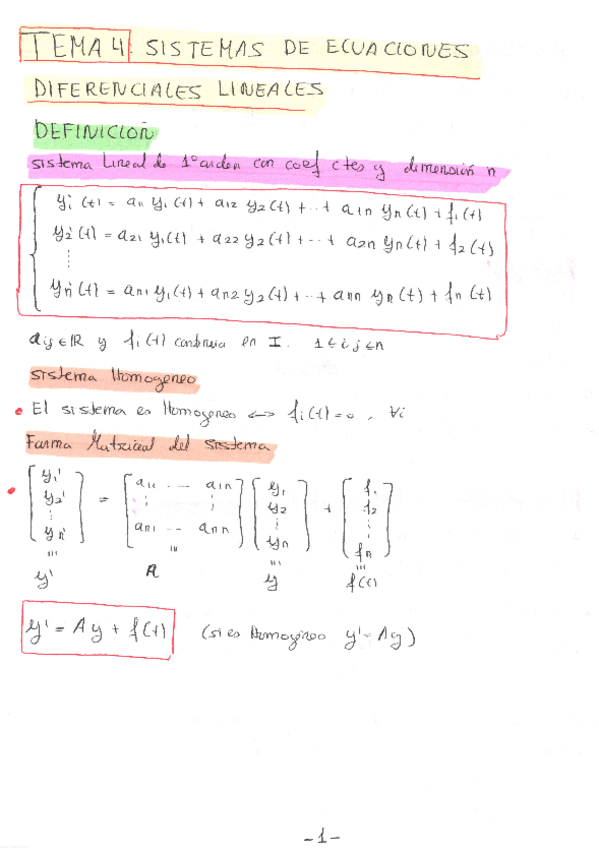 TEMA 4 SISTEMAS DE ECUACIONES
DIFERENCIALES LINEALES
DEFINICION
sistema Lineal de 1º orden con coef ctes y dimensión n
y₁'(t) = a₁₁ y₁(t) + a₁₂ y₂(t) + ... + a₁n yn(t) + f₁(t)
y₂'(t) = a₂₁ y₁(t) + a₂₂ y₂(t) + ... + a₂n yn(t) + f₂(t)
⋮
yn'(t) = an₁ y₁(t) + an₂ y₂(t) + ... + ann yn(t) + fn(t)
aij ∈ ℝ y fi(t) continua en I. 1 ≤ i, j ≤ n
sistema Homogeneo
• El sistema es Homogeneo ⟺ fi(t) = 0, ∀i
Forma Matricial del sistema
• [y₁' y₂' ⋮ yn'] = [a₁₁ ... a₁n ⋮ ⋮ an₁ ... ann] [y₁ y₂ ⋮ yn] + [f₁ f₂ ⋮ fn]
y' A y f(t)
y' = Ay + f(t) (si es Homogéneo y' = Ay)
-1-